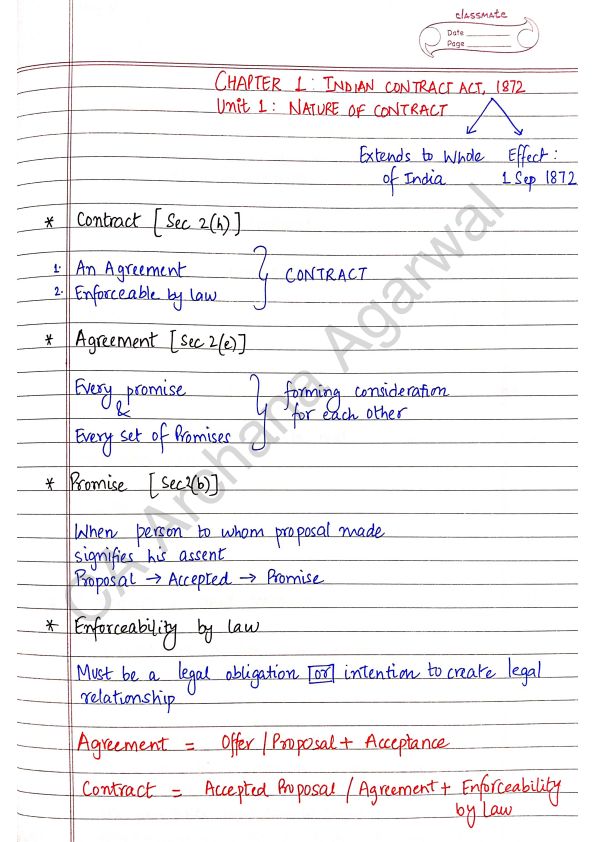 classmate
Date
Page
CHAPTER 1 : INDIAN CONTRACT ACT, 1872
Unit 1 : NATURE OF CONTRACT
Extends to Whole of India
Effect : 1 Sep 1872
* Contract [Sec 2(h)]
1. An Agreement
2. Enforceable by law
} CONTRACT
* Agreement [Sec 2(e)]
Every promise
&
Every set of Promises
} forming consideration
for each other
* Promise [Sec 2(b)]
When person to whom proposal made
signifies his assent
Proposal → Accepted → Promise
* Enforceability by law
Must be a legal obligation or intention to create legal
relationship
Agreement = Offer / Proposal + Acceptance
Contract = Accepted Proposal / Agreement + Enforceability
by Law
CA Archana Agarwal